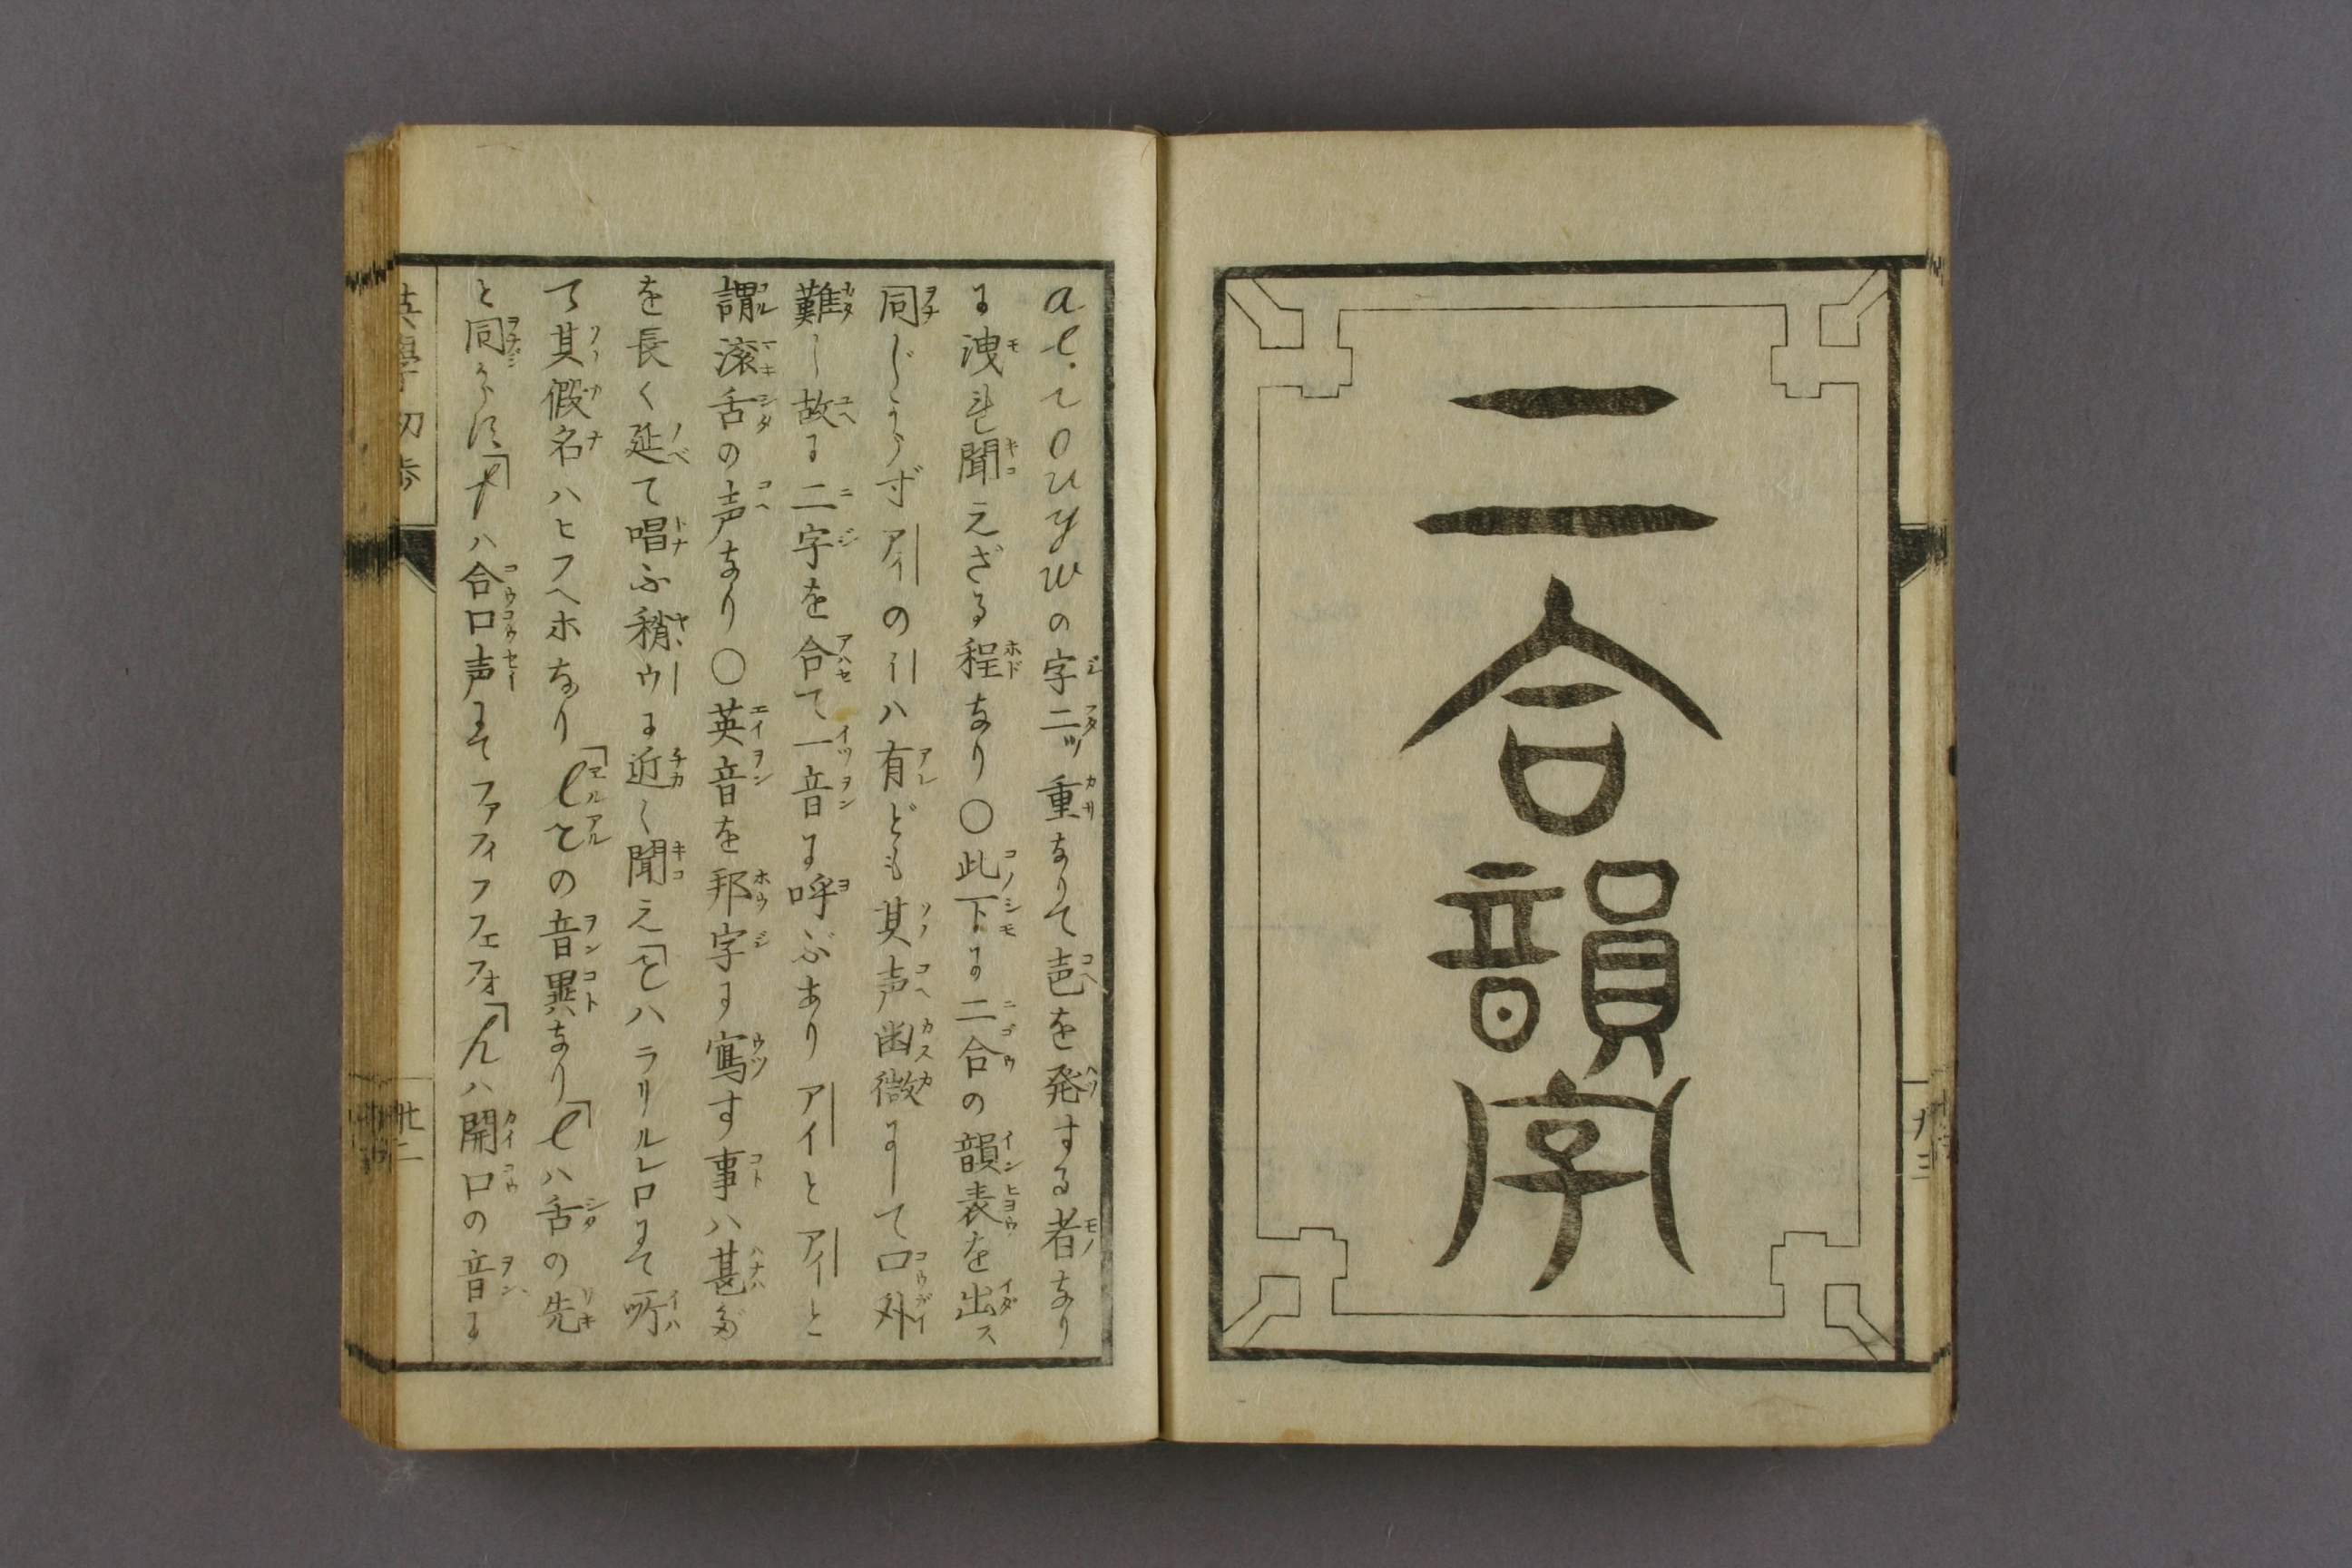 二合韻字
a e i o u y w の字二ッ重なりて声を発する者なり
同じからずアイのイハ有ども其声幽微にして口外
に洩れ聞えざる程なり○此下に二合の韻表を出ス
難し故に二字を合て一音に呼ぶありアイとアイと
謂滚舌の声なり○英音を邦字に寫す事ハ甚だ
を長く延て唱ふ稍ウに近く聞え「rハラリルレロにて所
て其假名ハヒフヘホなり「l rの音異なり「lハ舌の先
と同からず「fハ合口声にてファフィフフェフォ「hハ開口の音に
英學初歩
廿二